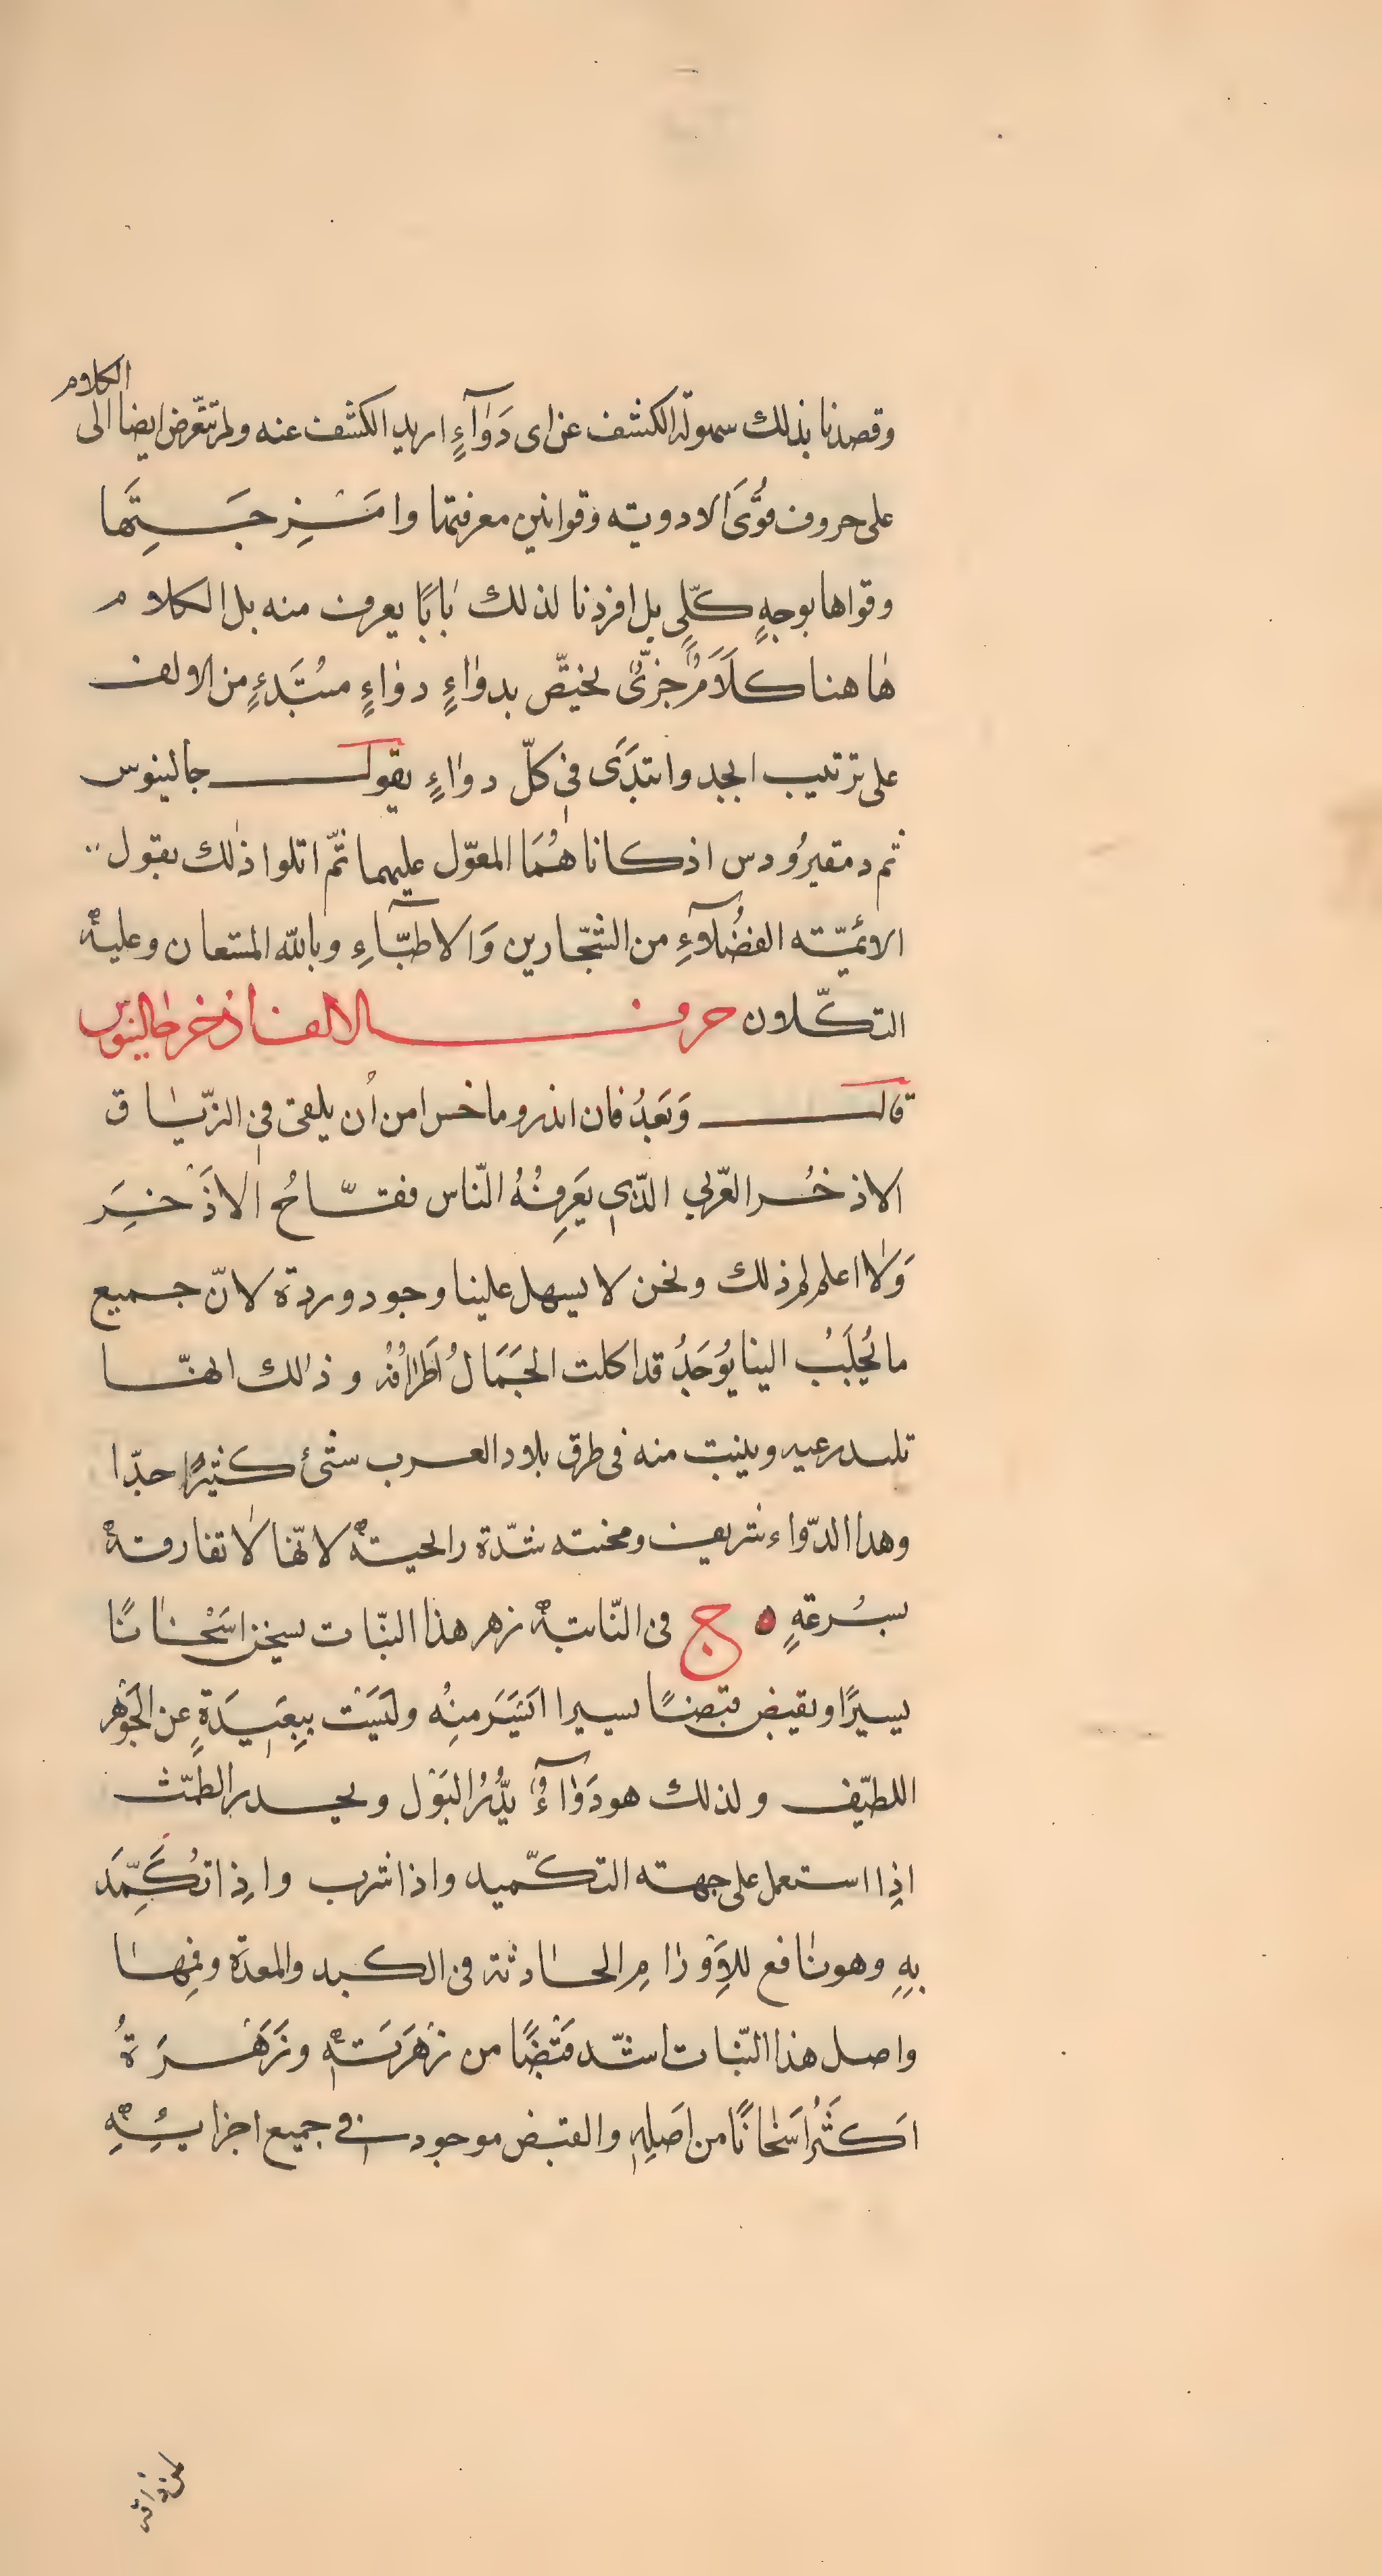 الكلام
وقصدنا بذلك سهولة الكشف عن اى دَوَآءٍ اريد الكشف عنه ولم نتعّرض ايضا الى
على حروف قُوَى الادويته وقوانين معرفتها وامَنِزجَتِهَا
وقواها بوجهٍ كلّىٍ بل افردنا لذلك بَابًا يعرف منه بل الكلام
هٰاهنا كلَامٌ جزىٌّ يختصّ بدواءٍ دواءٍ مبتَدءٍ من الالف
على ترتيب ابجد وابتدَى فى كلّ دواءٍ بقول جالينوس
ثم دمقيرُودس اذ كانا هُمَا المعوّل عليهما ثمّ اتلوا ذلك بقول
الائميّته الفضُلآءِ من الشجّارين وَالاطبّآءِ وبالله المستعان وعليهْ
التكّلان حرف الالف اذخر جالينوس
قال وَبَعدُ فان اندروماخس امن أن يلقى فى الترّيٰاق
الاذخُر العّربى الذّى يَعَرِفُهُ النّاس فقّاحُ الاذَخِرَ
وَلَا اعلم لم ذلك ونحن لا يسهل علينا وجود وردة لانّ جميع
ما يُجلَبُ الينا يُوجَدُ قد اكلت الجَمَالُ اطَرافُهُ وذلك انهّا
تلـد رعيه وينبت منه فى طرق بلاد العرب شىٔ كثيرًا جدّا
وهدا الدّواء شريف ومحنته شدّة رايحيتهْ لانّها لا تفارقهْ
بسُرعَةٍ ه ج فى الثّامنهْ زهر هذا النّبات يسخن اسَخٰانًا
يسيرًا ويقبض قبضًا يسيرا اَيسَرَ منِهُ وليَسَت ببِعَيدَةٍ عن الجَوهَر
اللطيّف ولذلك هو دَوَآءٌ يُدّرُ البَول ويحدر الطمّث
اذِا استعمل على جهته التكّميد واذا شرب واذِا تكَمِّدَ
بِهِ وهو نافع للاوَرامِ الحادثة فى الكبد والمعدة وفمِها
واصل هذا النّبات اشّد قَبضًا من زَهرَتهِ وزَهَرَةُ
اكَثَرُ اسَخَانًا من اصَلِهِ والقبض موجود فى جميع اجزايِئهِ